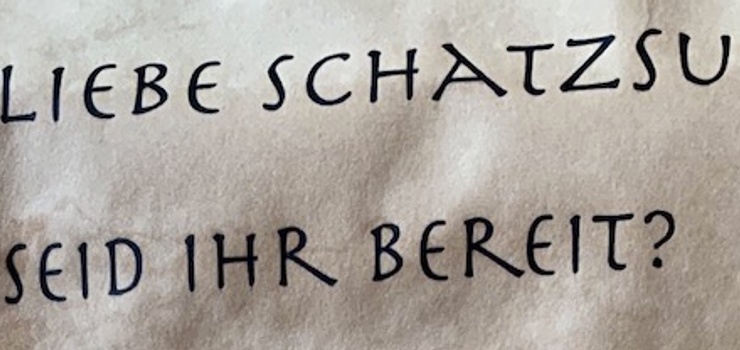 LIEBE SCHATZSU
SEID IHR BEREIT?